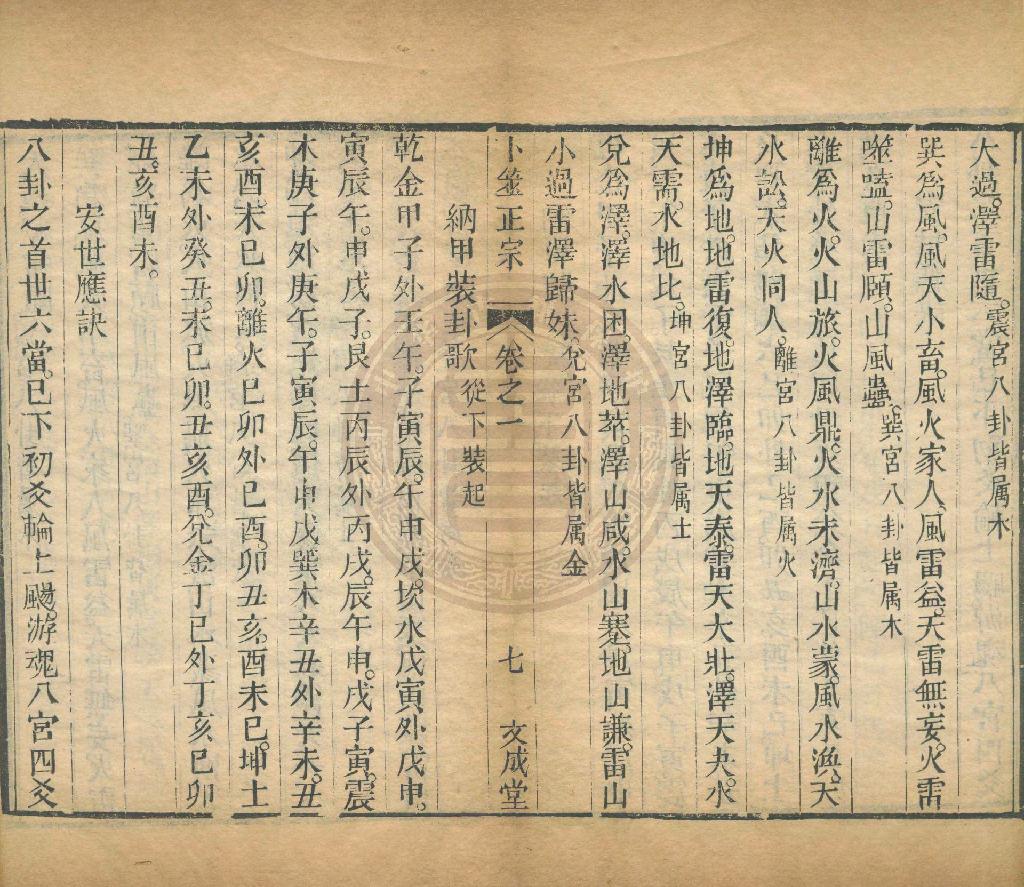 大過。澤雷隨。震宮八卦皆属木
巽為風。風天小畜。風火家人。風雷益。天雷無妄。火雷
噬嗑。山雷頤。山風蠱。巽宮八卦皆属木
離為火。火山旅。火風鼎。火水未濟。山水蒙。風水渙。天
水訟。天火同人。離宮八卦皆属火
坤為地。地雷復。地澤臨。地天泰。雷天大壯。澤天夬。水
天需。水地比。坤宮八卦皆属土
兌為澤。澤水困。澤地萃。澤山咸。水山蹇。地山謙。雷山
小過。雷澤歸妹。兌宮八卦皆属金
卜筮正宗 卷之一 七 文成堂
納甲裝卦歌 從下裝起
乾金甲子外壬午。子寅辰。午申戌。坎水戊寅外戊申。
寅辰午。申戌子。艮土丙辰外丙戌。辰午申。戌子寅。震
木庚子外庚午。子寅辰。午申戌。巽木辛丑外辛未。丑
亥酉。未巳卯。離火巳卯外巳酉。卯丑亥。酉未巳。坤土
乙未外癸丑。未巳卯。丑亥酉。兌金丁巳外丁亥。巳卯
丑。亥酉未。
安世應訣
八卦之首世六當。巳下初爻輪上颺。游魂八宮四爻